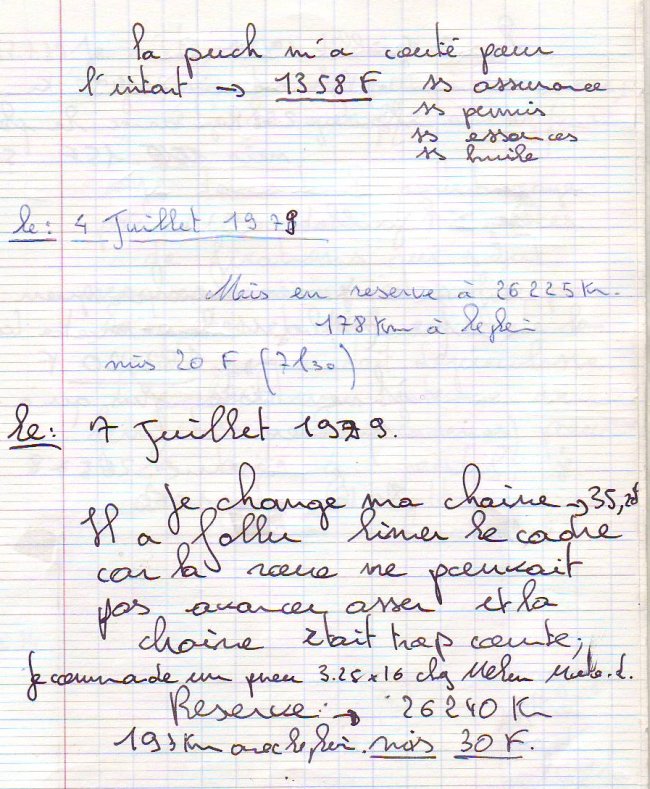 la puch m'a couté pour
l'intant → 1358 F ss assurance
ss permis
ss essences
ss huile
le: 4 Juillet 1979
Mais en reserve à 26225 Km.
178 Km à
mis 20 F (7l30)
Le: 7 Juillet 1979.
Je change ma chaine → 35,
Il a fallu limer le cadre
car la roue ne pouvait
pas avancer asser et la
chaine était trop courte,
Je commade un pneu 3.25x16 chez
Reserve: → 26240 Km
193 Km avec mis 30 F.